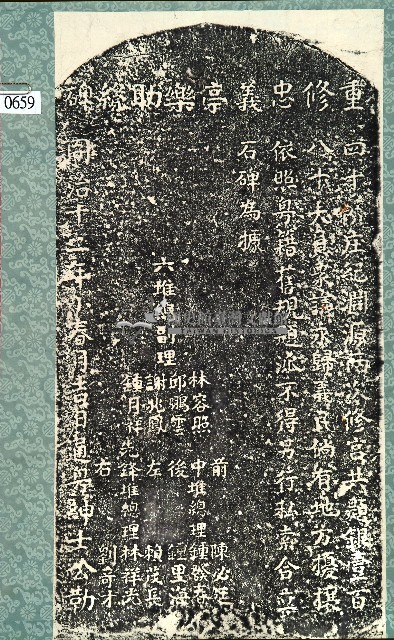 0659
重修忠義亭樂助緣碑
四十份庄紀開源兩次修宮共題銀壹百
八十大員眾議永歸義民倘有地方擾攘
依照粵籍舊規通派不得另行私索合立
石碑為據
六堆總副理
林容照
邱鵬雲
謝兆鳳
鍾月祥
前 陳必
中堆總理鍾發春
後 鍾里海
左 賴茂長
先鋒堆總理林祥光
右 劉奇才
同治十二年 春月吉日通粵紳士公勒